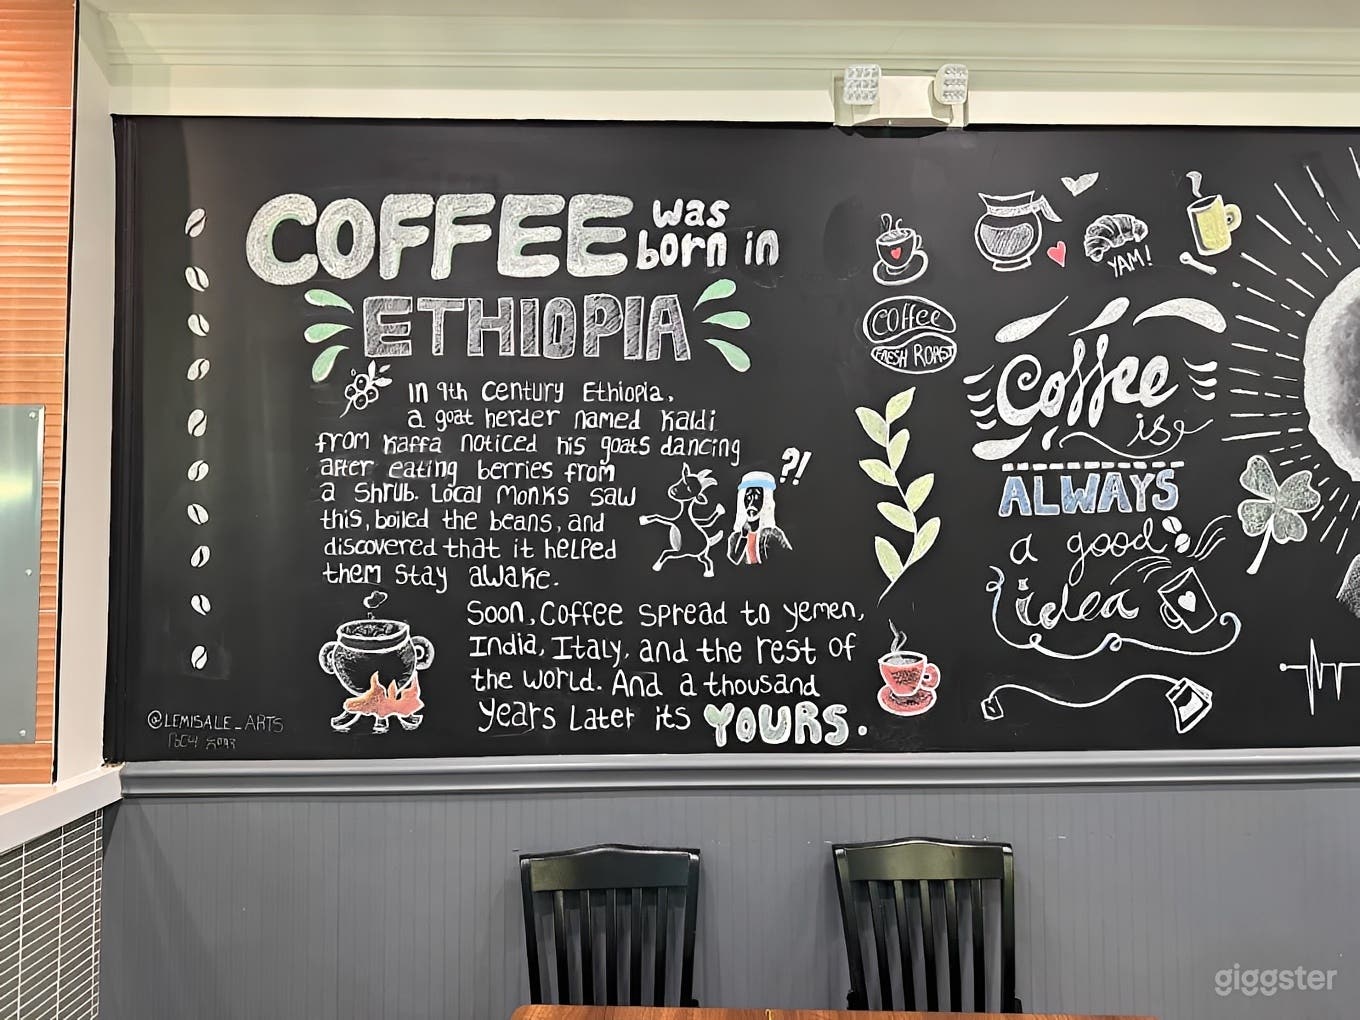 COFFEE was born in
ETHIOPIA
In 9th Century Ethiopia,
a goat herder named Kaldi
from Kaffa noticed his goats dancing
after eating berries from
a shrub. Local Monks saw
this, boiled the beans, and
discovered that it helped
them stay awake.
?!
Soon, Coffee spread to Yemen,
India, Italy, and the rest of
the world. And a thousand
years later its YOURS.
@LEMISALE_ARTS
Coffee
FRESH ROAST
YAM!
Coffee
is
ALWAYS
a good
idea
giggster